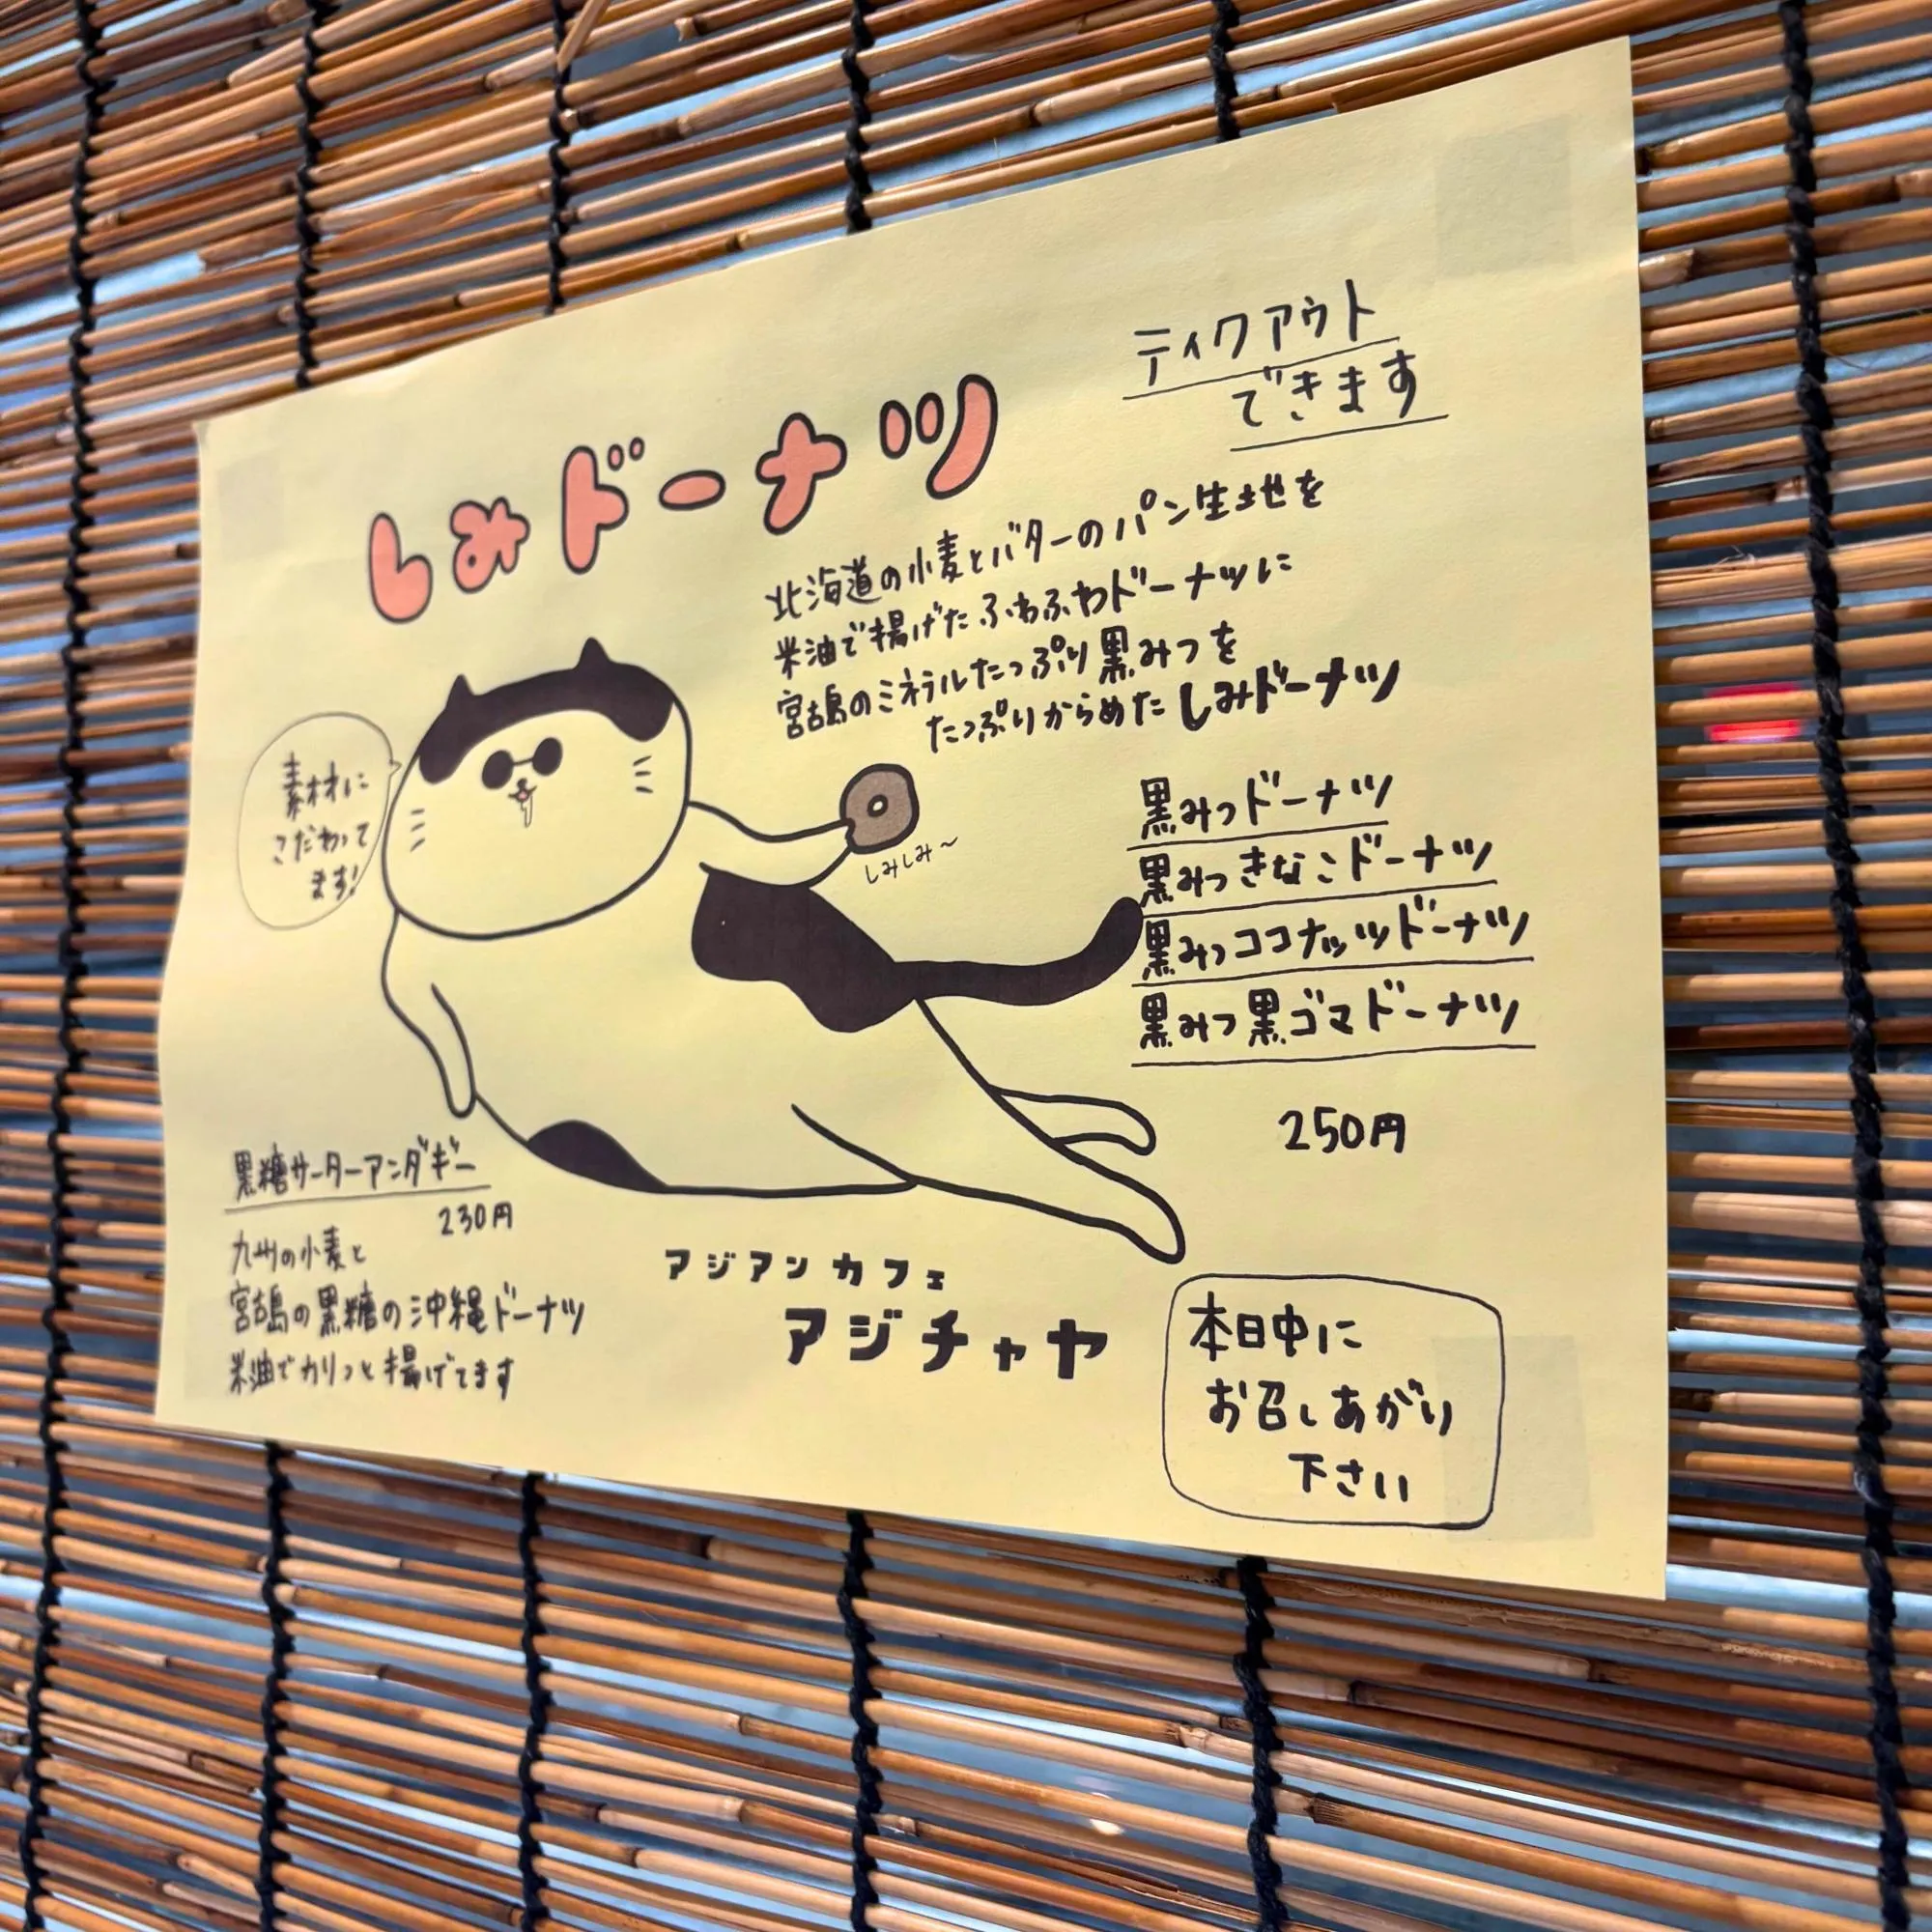 ティクアウト
できます
しみドーナツ
北海道の小麦とバターのパン生地を
米油で揚げたふわふわドーナツに
宮古島のミネラルたっぷり黒みつを
たっぷりからめたしみドーナツ
素材に
こだわって
ます!
しみしみ〜
黒みつドーナツ
黒みつきなこドーナツ
黒みつココナッツドーナツ
黒みつ黒ゴマドーナツ
250円
黒糖サーターアンダギー
230円
九州の小麦と
宮古島の黒糖の沖縄ドーナツ
米油でカリっと揚げてます
アジアンカフェ
アジチャヤ
本日中に
お召しあがり
下さい